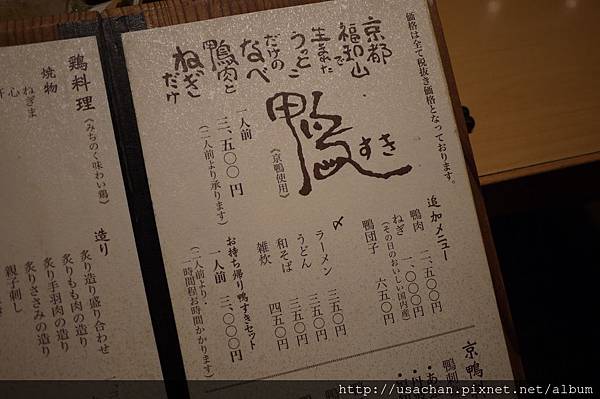 価格は全て税抜き価格となっております。
京都
福知山で
生まれた
うっとこ
だけの
なべ
鴨肉と
ねぎ
だけ
鴨すき
《京鴨使用》
一人前
三、五〇〇円
(二人前より承ります)
追加メニュー
鴨肉 二、五〇〇円
ねぎ 一、〇〇〇円
(その日のおいしい国内産)
鴨団子 六五〇円
〆
ラーメン 三五〇円
うどん 三五〇円
和そば 三五〇円
雑炊 四五〇円
お持ち帰り鴨すきセット
一人前 三、〇〇〇円
(二人前より・
時間程お時間かかります)
京鴨
鴨刺
鶏料理
《みちのく味わい鶏》
焼物
ねぎま
心
造り
炙り造り盛り合わせ
炙りもも肉の造り
炙り手羽肉の造り
炙りささみの造り
親子刺し
http://usachan.pixnet.net/album